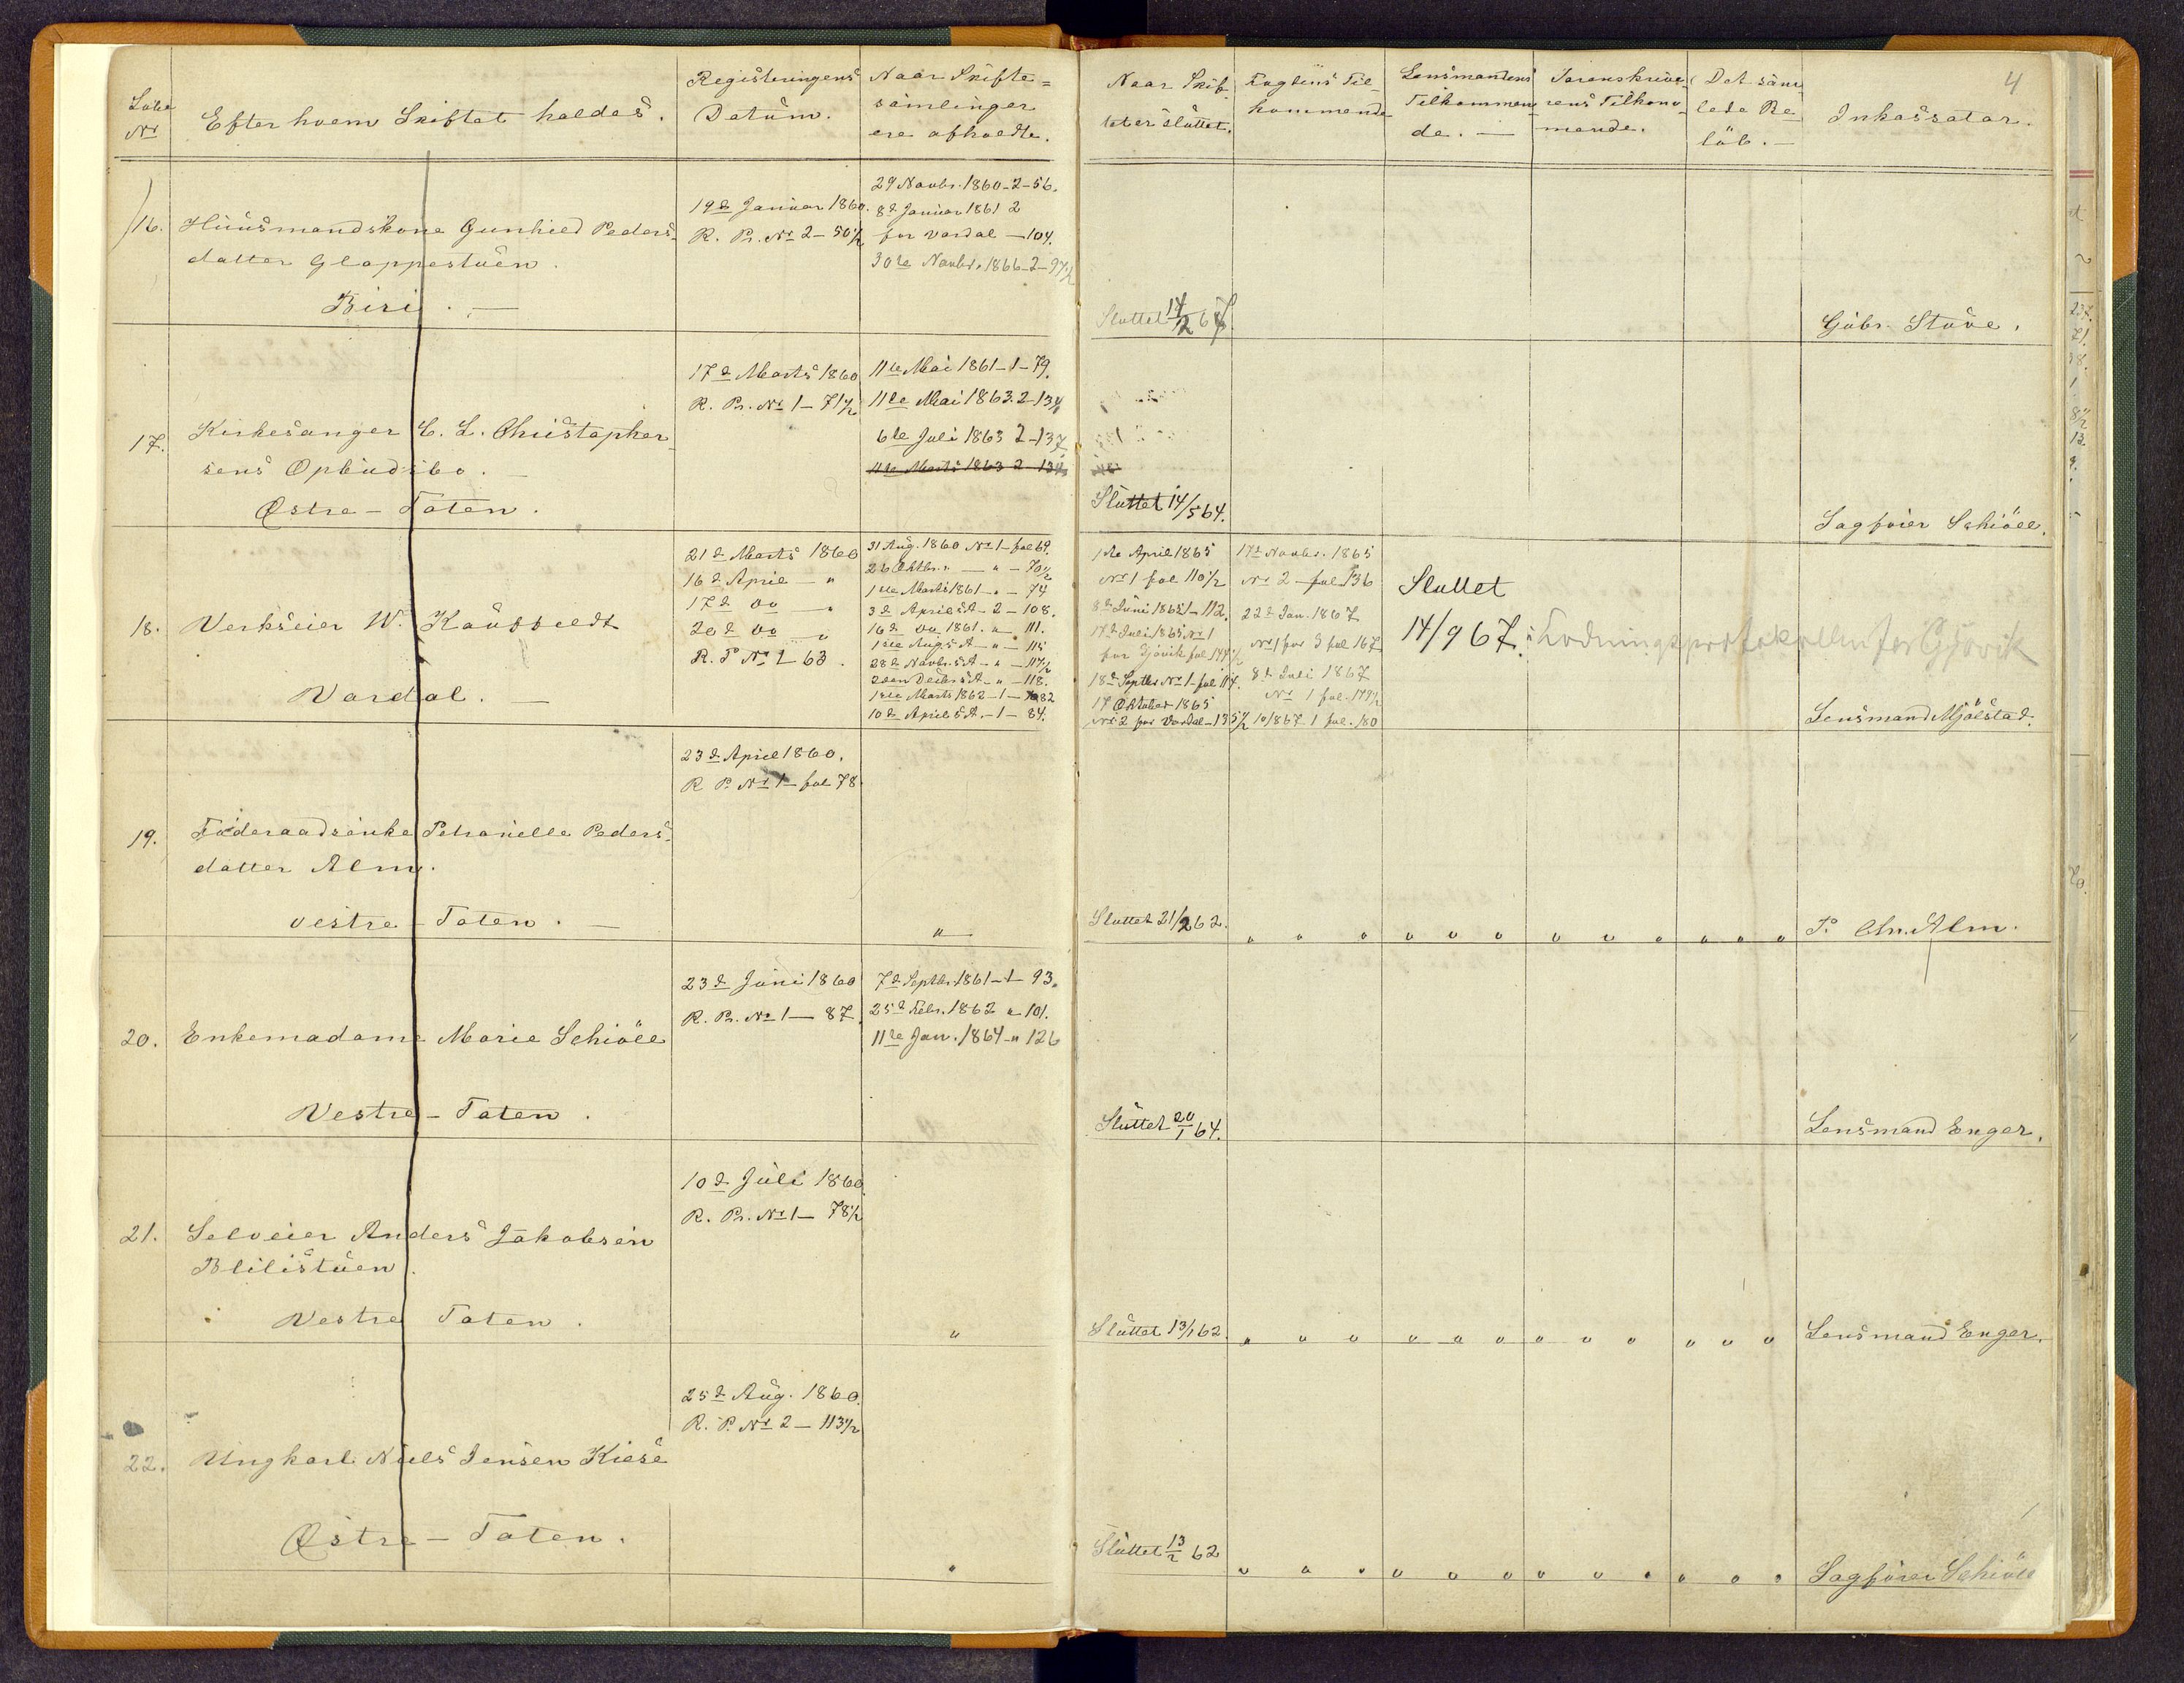 4
Løbe Nr
Efter hvem Skiftet holdes.
Registeringens
Datum.
Naar Skifte=
samlinger
ere afholdte.
Naar Skif-
tet er sluttet.
Fogdens Til-
kommende
Lensmandens
Tilkommen-
de. —
Sorenskrive-
rens Tilkom-
mende.
Det sam-
lede Be-
løb. —
Inkassator.
16.
Huusmandskone Gunhild Peders-
datter Glappestuen.
Biri. —
19d Januar 1860.
R. Pr. Nr 2 - 50 1/2
29 Novbr. 1860 - 2 - 56.
8d Januar 1861 2
for Vardal — 104.
30te Novbr. 1866 - 2 - 97 1/2
Sluttet 14/2 67
Gübr. Stüve.
17.
Kirkesanger C. L. Christopher
sens Opbudsbo. —
Østre - Toten.
17d Marts 1860
R. Pr. Nr 1 - 71 1/2
11te Mai 1861 - 1 - 79.
11te Mai 1863. 2 - 134
6te Juli 1863 2 - 137
11te Marts 1863 2 - 134
Sluttet 14/5 64.
Sagfører Schiöll.
18.
Verkseier W. Kauffeldt
Vardal. —
21d Marts 1860
16d April — "
17d do — "
20d do — "
R. P Nr 1 63.
31 Aug. 1860 Nr 1 - fol 69.
26 Oktbr. " — " - 70 1/2
1ste Marts 1861 - " - 74
3d April s.A. - 2 - 108.
16d do 1861. " 111.
1ste Aug s.A - " - 115
28d Novbr. s.A - " - 117 1/2
2den Decbr s.A - " - 118.
1ste Marts 1862 - 1 - 82
10d April s.A. - 1 - 84.
1ste April 1865
Nr 1 fol 110 1/2
8d Juni 1865 1 - 112.
17d Juli 1865 Nr 1
for Gjøvik fol 144 1/2
18d Septbr Nr 1 - fol 114.
17 Oktober 1865
Nr 2 for Vardal - 135 1/2
17d Novbr. 1865
Nr 2 - fol 136
22d Jan. 1867
Nr 1 for 3 fol 167
8d Juli 1867
Nr 1 fol. 179 1/2
10/8 67 1 fol. 180
Sluttet
14/9 67.
for Gjøvik
Lensmand Mjølstad.
19.
Føderaadsenke Petronelle Peders-
datter Alm.
vestre - Toten. —
23d April 1860.
R P. Nr 1 - fol 78.
"
Sluttet 21/2 62.
P. Chr. Alm.
20.
Enkemadame Marie Schiöll
Vestre - Toten.
23d Juni 1860
R. Pr. Nr 1 — 87.
7d Septbr. 1861 - 1 - 93.
25d Febr. 1862 " 101.
11te Jan. 1864 - " 126
Sluttet 20/1 64.
Lensmand Enger.
21.
Selveier Anders Jakobsen
Blilistuen.
Vestre Toten.
10d Juli 1860
R. Pr. Nr 1 — 78 1/2
"
Sluttet 13/1 62.
Lensmand Enger.
22.
Ungkarl Niels Jensen Kiese
Østre - Toten.
25d Aug. 1860.
R. P. Nr 2 — 113 1/2
"
Sluttet 13/2 62
Sagfører Schiöll